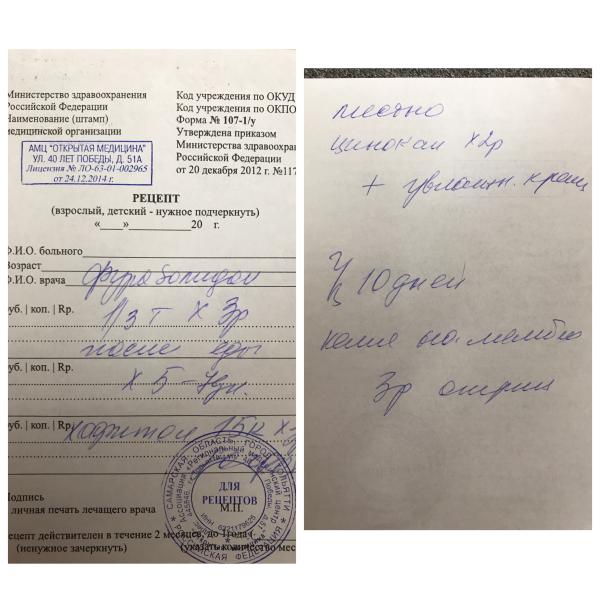 Министерство здравоохранения
Российской Федерации
Наименование (штамп)
медицинской организации
АМЦ "ОТКРЫТАЯ МЕДИЦИНА"
УЛ. 40 ЛЕТ ПОБЕДЫ, Д. 51А
Лицензия № ЛО-63-01-002965
от 24.12.2014 г.
Код учреждения по ОКУД
Код учреждения по ОКПО
Форма № 107-1/у
Утверждена приказом
Министерства здравоохран
Российской Федерации
от 20 декабря 2012 г. №117
РЕЦЕПТ
(взрослый, детский - нужное подчеркнуть)
«____»____________20 г.
Ф.И.О. больного
Возраст
Ф.И.О. врача
руб. | коп. | Rp.
1/3 т х 3р
после еды
руб. | коп. | Rp.
х 5-7дн.
руб. | коп. | Rp.
хофитол 15к х
ДЛЯ
РЕЦЕПТОВ
М.П.
САМАРСКАЯ ОБЛАСТЬ, ГОРОД ТОЛЬЯТТИ
РОССИЙСКАЯ ФЕДЕРАЦИЯ
Подпись
и личная печать лечащего врача
Рецепт действителен в течение 2 месяцев, до 1 года
(ненужное зачеркнуть)
(указать количество мес
местно
цинокап х 2р
+ увлажн. крем
10 дней
3р